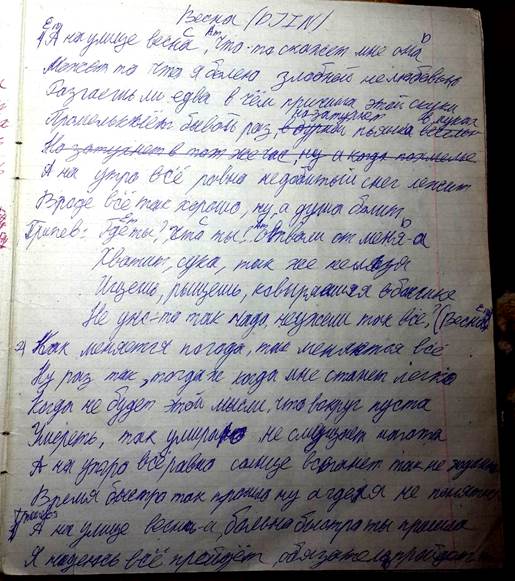 Весна (DJIN)
Em C Am D
1) А на улице весна, что-то скажет мне она
Может то что я болен злобной нелюбовью
Разгаешь ли едва в чём причина этой скуки
на затухнет в руках
Промелькнёт бывой раз, пьянка
На затухнет в тот же час, ну а когда похмелье
А на утро всё равно недобитый снег лежит
Вроде всё так хорошо, ну, а душа болит
Em C Am D
Припев: Где ты?, Кто ты? Отвали от меня-а
Хватит, сука, так же нельзя
Ищешь, рыщешь, ковыряешься в бочине
Em
Не уж-то так надо, неужели так всё? (Весна
2) Как меняется погода, так меняются всё
Ну раз так, тогда ж когда мне станет легко
Когда не будет этой мысли, что вокруг пуста
Умереть, так умирать не смущает нагота
А на утро всё равно солнце встанет так не
Время быстро так прошло ну а где я не понятно
А на улице весна-а, больно быстра ты прошла
Я надеюсь всё пройдёт, обязательно пройдёт